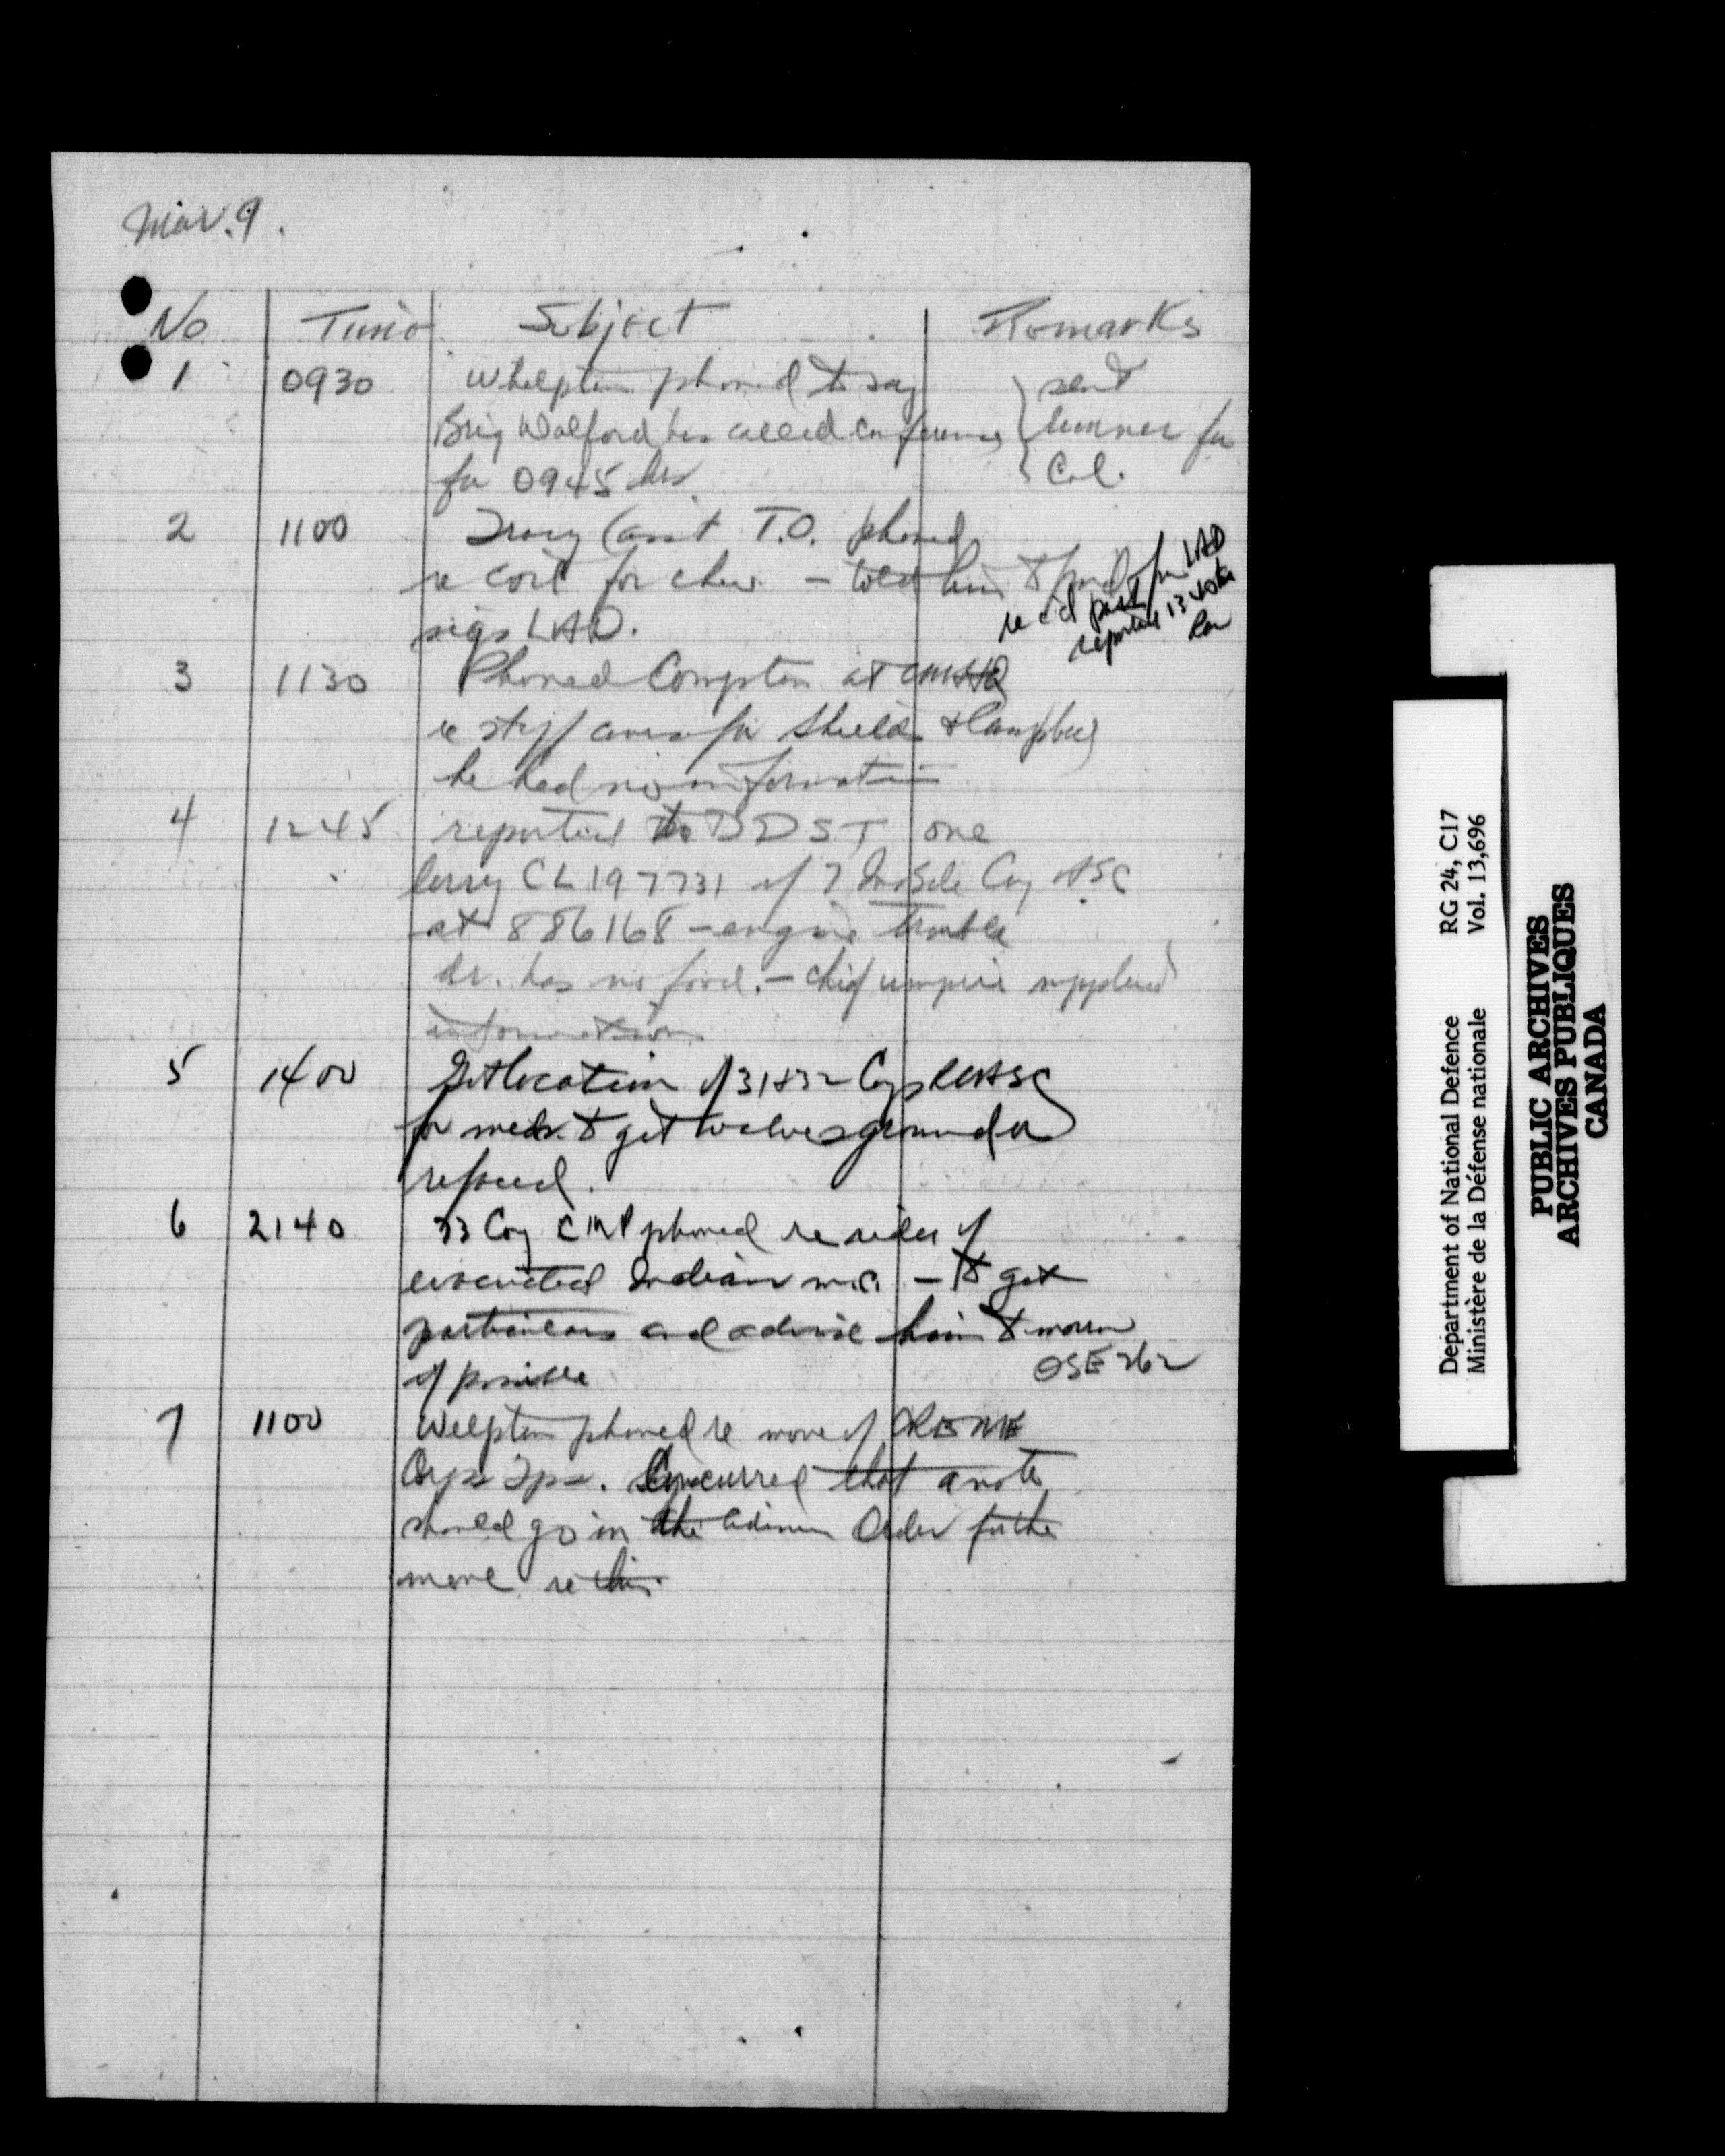 Mar. 9.
No Time Subject Remarks
1 0930 Whelpton phoned to say sent
Brig Walford has called conference for
for 0945 hrs. Col.
2 1100 (asst T.O. phoned
re coil for chev. — told him to from LAD
sigs LAD.
re
reported
3 1130 Phoned Compton at CMHQ
re for Shields & Campbell
he had no information
4 1245 reported to DDST one
lorry CL197731 of 7 Coy ASC
at 886168 – engine trouble
dr. has no food. – chief umpire supplied
information
5 1400 Got location of 31 & 32 Coys RCASC
for to get valves ground or
refaced.
6 2140 33 Coy phoned re rider of
evacuated Indian m.c. – to get
particulars and advise him tomorrow
if possible OSE 262
7 1100 Welpton phoned re move of REME
Corps Tps. Concurred that a note
should go in the Admin Order for the
move re this.
Department of National Defence RG 24, C17
Ministère de la Défense nationale Vol. 13,696
PUBLIC ARCHIVES
ARCHIVES PUBLIQUES
CANADA